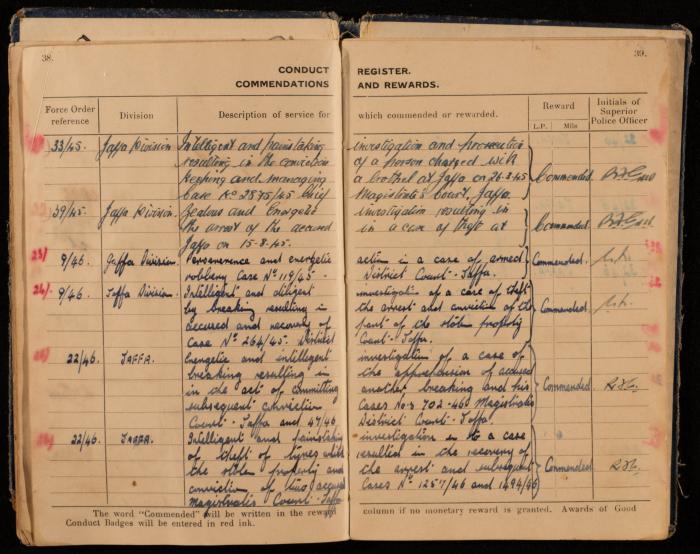 38.
39.
CONDUCT REGISTER.
COMMENDATIONS AND REWARDS.
Force Order reference
Division
Description of service for which commended or rewarded.
Reward
L.P. Mils
Initials of Superior Police Officer
33/45. Jaffa Division. Intelligent and painstaking investigation and prosecution
resulting in the conviction of a person charged with
keeping and managing a brothel at Jaffa on 26.3.45 Commended
Case No 2875/45 Chief Magistrate's Court, Jaffa.
39/45. Jaffa Division. Zealous and energetic investigation resulting in
the arrest of the accused in a case of theft at Commended
Jaffa on 15-8-45.
23/ 9/46. Jaffa Division. Perseverence and energetic action in a case of armed Commended.
robbery Case No 119/45 - District Court - Jaffa.
24/. 9/46. Jaffa Division. Intelligent and diligent investigation of a case of theft
by breaking resulting in the arrest and conviction of the Commended.
accused and recovery of part of the stolen property
Case No 264/45. District Court - Jaffa.
22/46 JAFFA. Energetic and intelligent investigation of a case of
breaking resulting in the apprehension of accused
in the act of committing another breaking and his Commended
subsequent conviction Cases Nos 702-460 Magistrates
Court - Jaffa and 47/46 District Court - Jaffa.
22/46. JAFFA. Intelligent and painstaking investigation in to a case
of theft of tyres which resulted in the recovery of
the stolen property and the arrest and subsequent Commended
conviction of two accused Cases No 1257/46 and 1494/46
Magistrates Court - Jaffa
The word "Commended" will be written in the reward column if no monetary reward is granted. Awards of Good
Conduct Badges will be entered in red ink.